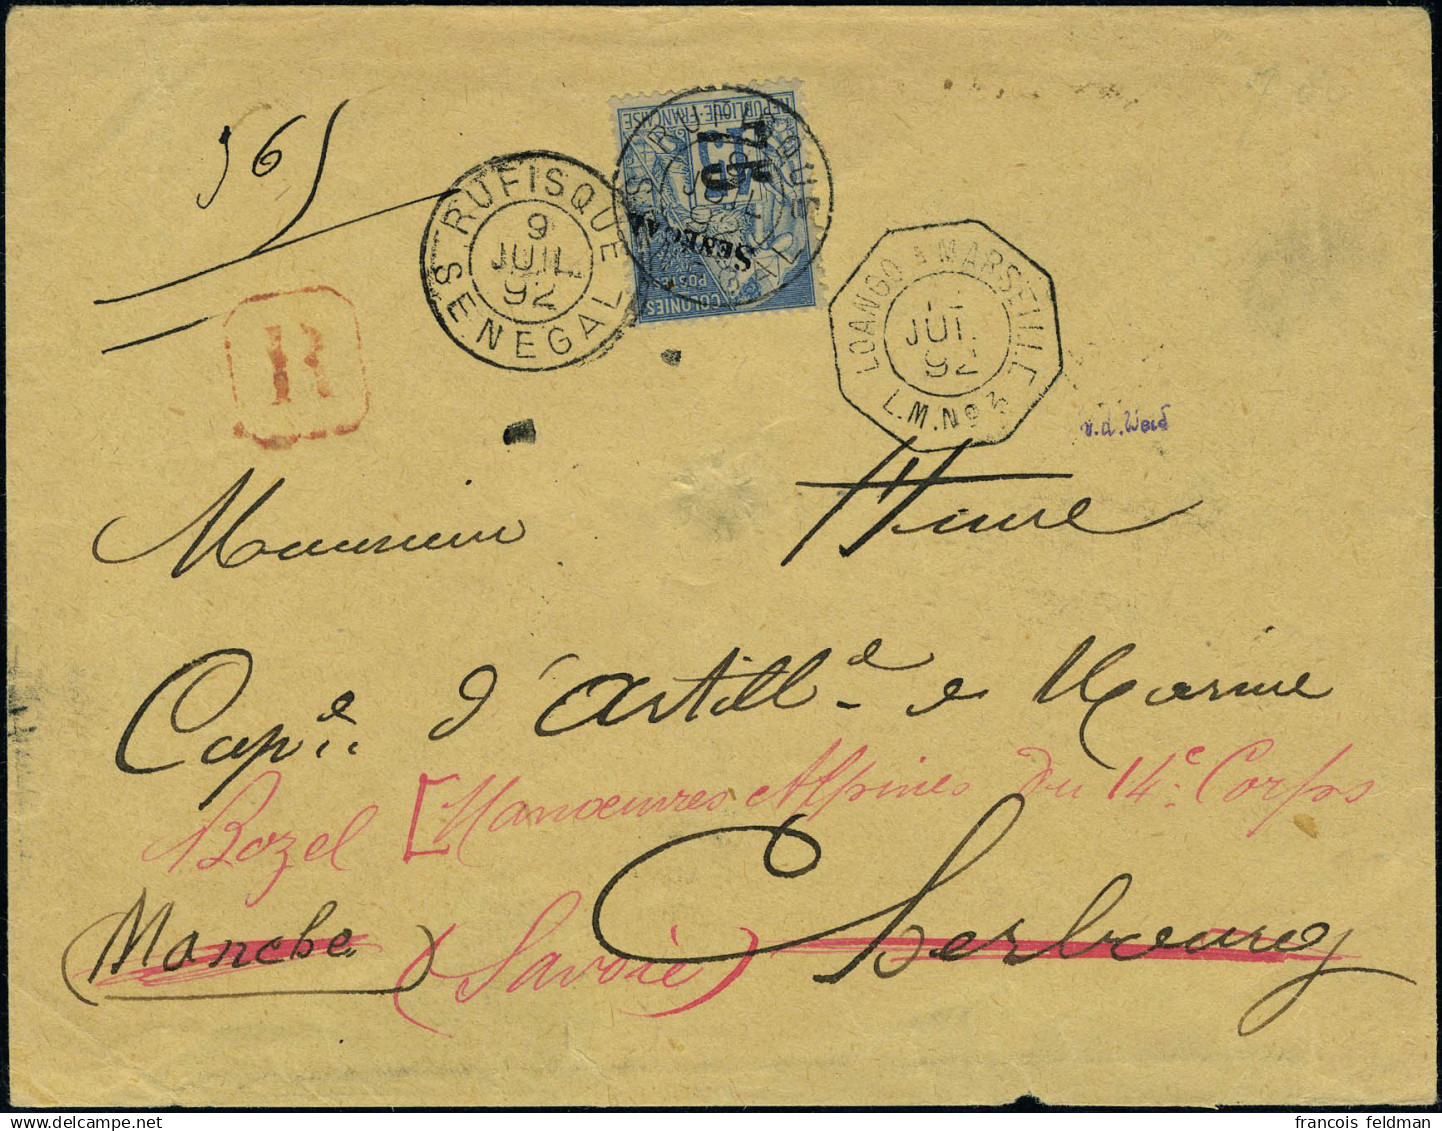 565
RUFISQUE
9
JUIL
92
SENEGAL
REPUBLIQUE FRANÇAISE
75
SENEGAL
POSTES
COLONIES
RUFISQUE
SENEGAL
LOANGO A MARSEILLE
JUIL
92
L.M.No 3
R
v.d.Weid
Monsieur Heure
Capne d'Artilled de Marine
Bozel [Manœuvres Alpines du 14e Corps
(Manche) (Savoie) Cherbourg
francois feldman